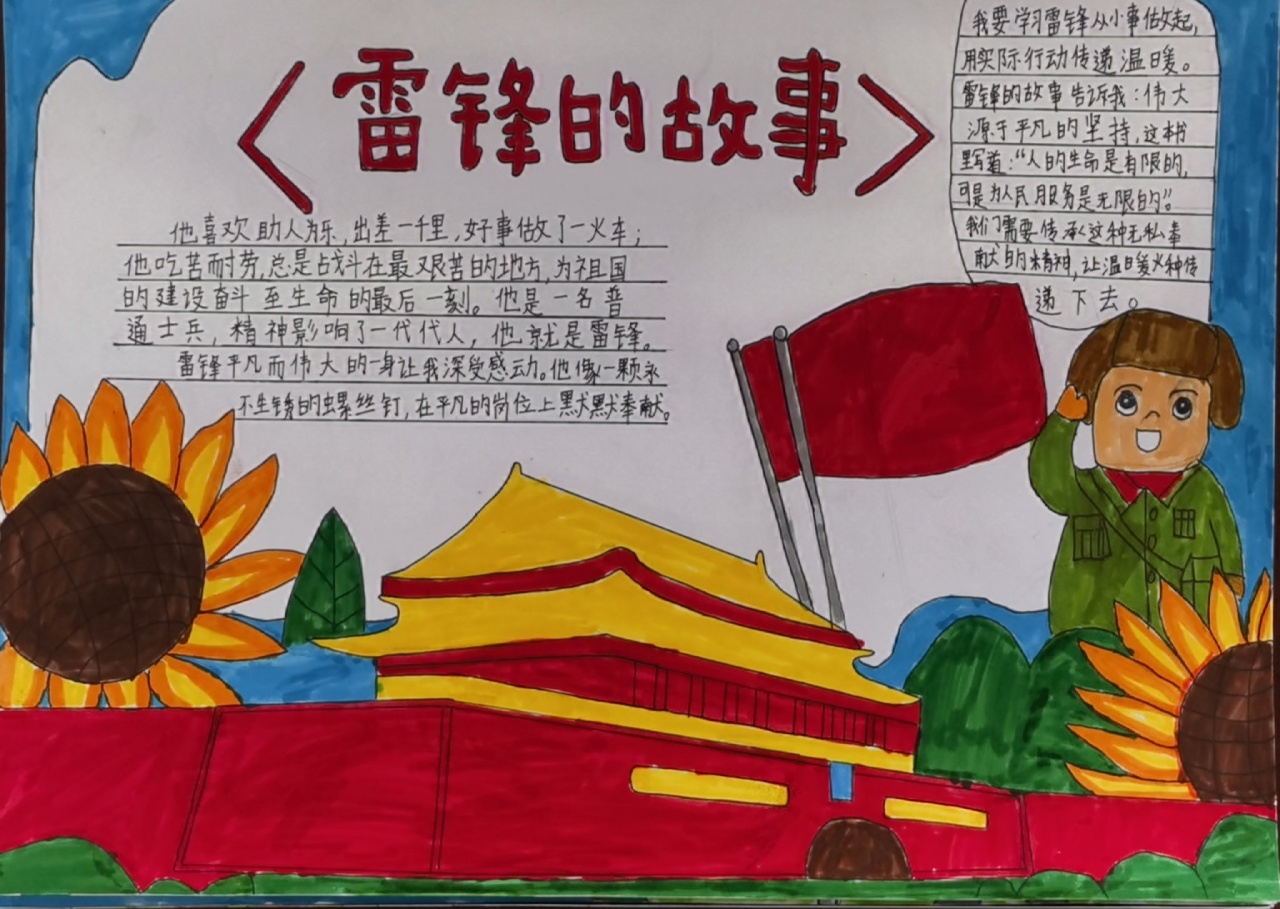 〈雷锋的故事〉
他喜欢助人为乐,出差一千里,好事做了一火车;
他吃苦而耐劳,总是战斗在最艰苦的地方,为祖国
的建设奋斗至生命的最后一刻。他是一名普
通士兵,精神影响了一代代人,他就是雷锋。
雷锋平凡而伟大的一身让我深受感动。他像一颗永
不生锈的螺丝钉,在平凡的岗位上默默奉献。
我要学习雷锋从小事做起,
用实际行动传递温暖。
雷锋的故事告诉我:伟大
源于平凡的坚持,这本书
里写道:“人的生命是有限的,
可是为人民服务是无限的”。
我们需要传承这种无私奉
献的精神,让温暖火种传
递下去。